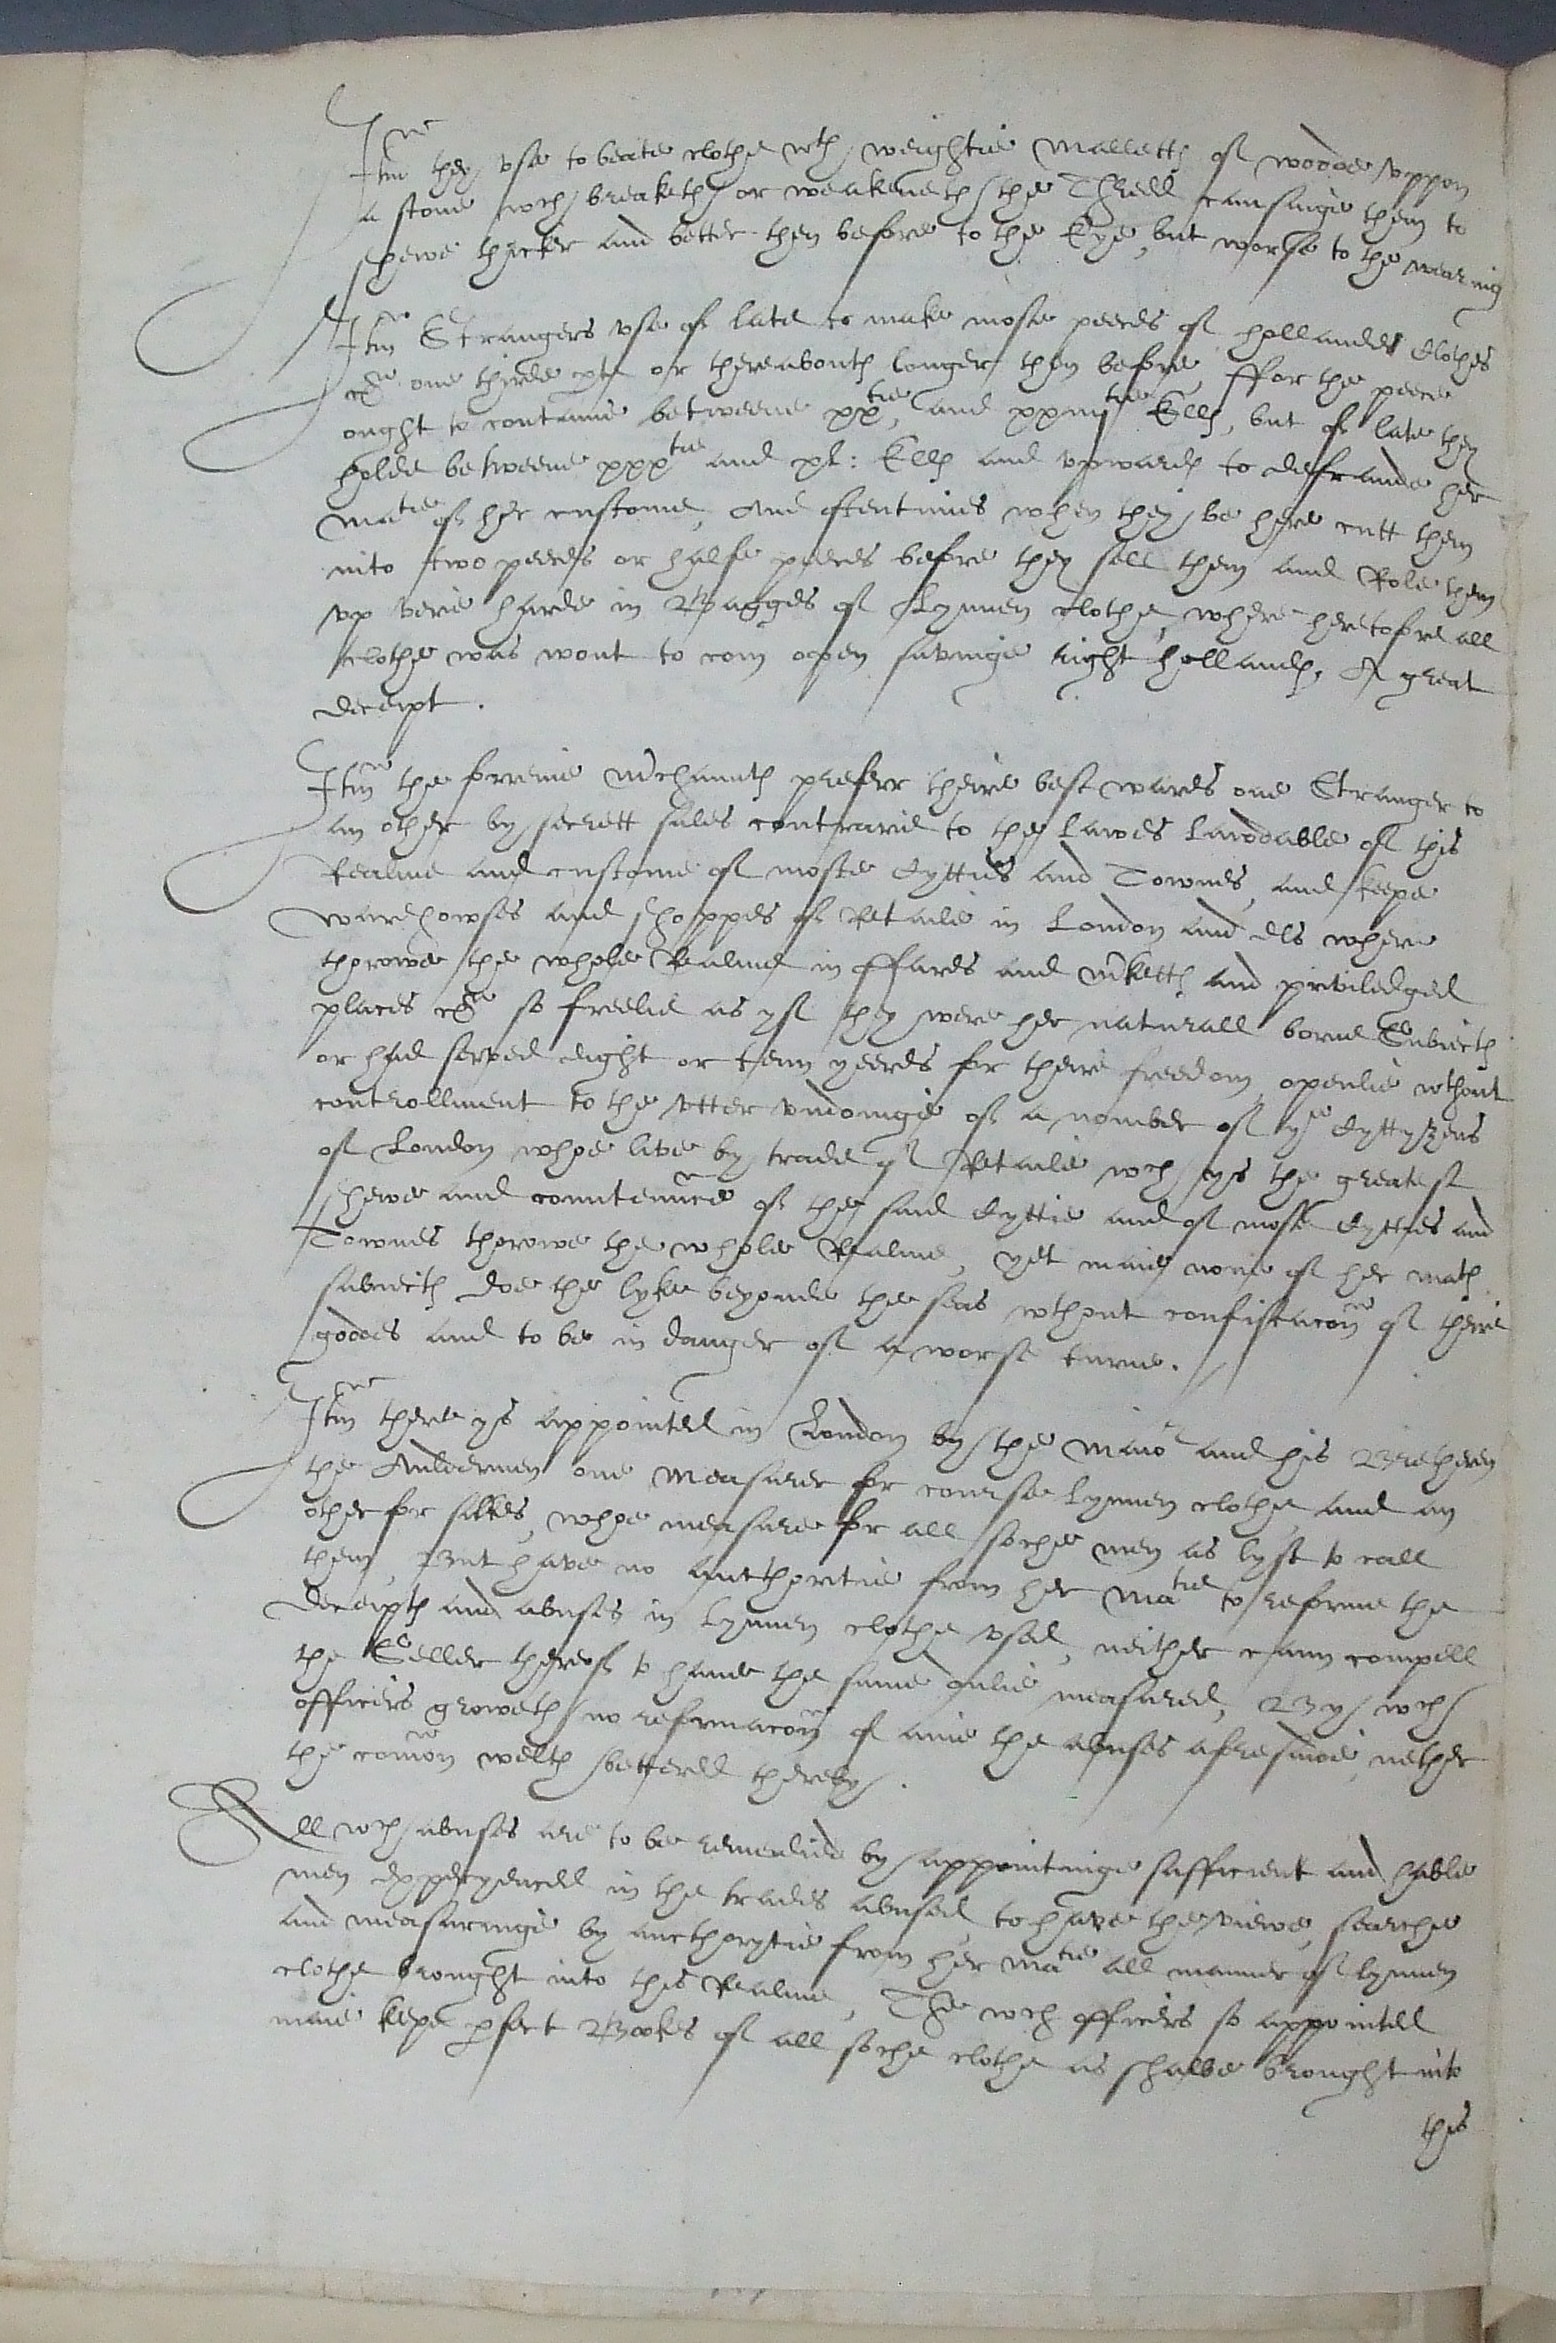 Itm they vse to beate clothe wth weightie Malletts of wodde vppon
a stone wch breaketh or weakeneth the Threed causinge them to
shewe thicker and better then before to the Eye, but worse to the wearing
Itm Strangers vse of late to make moste peeces of hollandes Clothes
&c one thirde pte or thereabouts longer then before, ffor the peece
ought to contayne betweene xxtie, and xxiiijtie Ells, but of late they
holde betweene xxxtie and xl: Ells and vpwards to defraude her
Matie of her custome, And oftentimes when they be here cutt them
into two peeces or halfe peeces before they sell them and Role them
vp verie harde in Bagges of Lynnen clothe, where heretofore all
clothe was wont to com open savinge right hollands, A great
deceipt.
Itm the forreine Mchaunts preferr theire best wares one Stranger to
an other by secrett sales contrarie to the Lawes lawdable of this
Realme and custome of moste Cytties and Townes, and keepe
warehowses and shoppes of Retaile in London and els where
thorowe the whole Realme in ffares and Mketts and priviledged
places &c so freelie as yf they were her naturall borne Subiects
or had served eight or tenn yeeres for theire freedom openlie wthout
controllment to the vtter vndoinge of a nomber of ye Cyttyzens
of London whoe live by trade of Retaile wch ys the greatest
shewe and countennce of the said Cyttie and of moste Cytties and
Townes thorowe the whole Realme, yet maie none of her mats
subiects doe the lyke beyonde the seas wthout confiscacon of theire
goodes and to be in danger of a worse turne.
Itm there ys appointed in London by the Maior and his Bretheren
the Auldermen one Measurer for course Lynnen clothe and an
other for silkes, whoe measure for all soche men as lyst to call
them, But have no aucthoritie from her Matie to reforme the
deceipts and abuses in Lynnen clothe vsed, neither cann compell
the Seller thereof to have the same onlie measured, By wch
officers groweth no reformacon of anie the abuses aforesaide, nether
the comon welth bettered thereby.
All wch abuses are to be remedied by appointinge sufficient and hable
men experyenced in the trades abused, to have the viewe, searche
and measuringe by aucthorytie from her Matie all manner of lynnen
clothe brought into this Realme, The wch officers so appointed
maie kepe pfect Bookes of all soche clothe as shalbe brought into
this